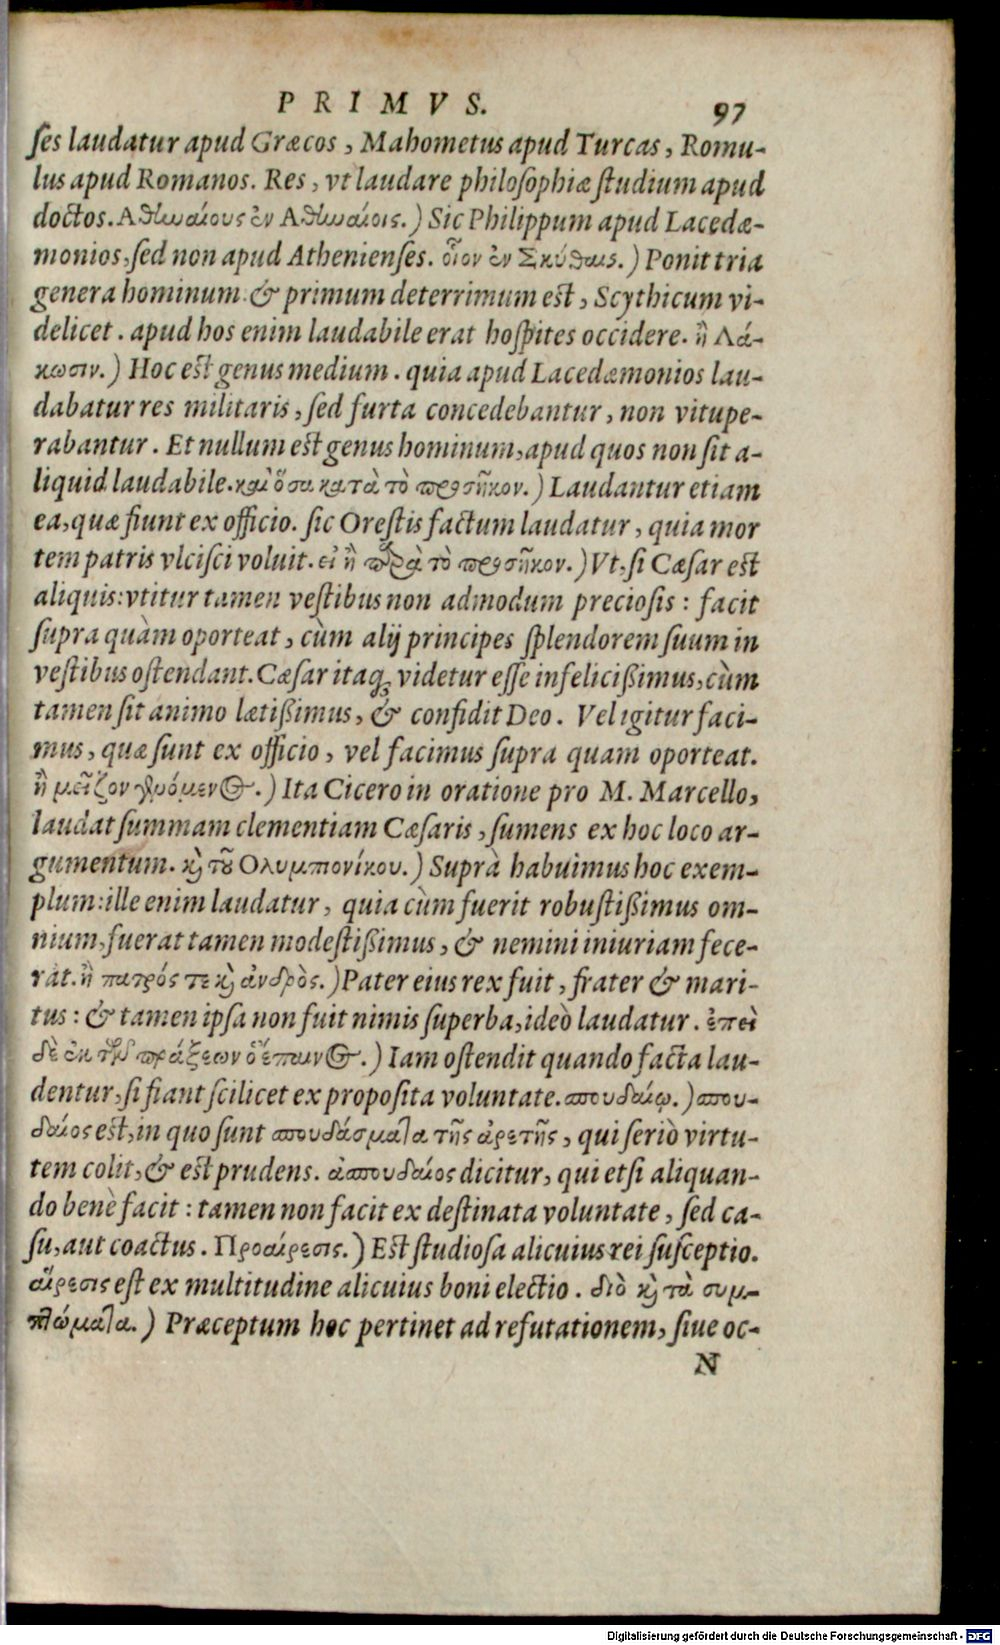 PRIMVS. 97
ſes laudatur apud Græcos, Mahometus apud Turcas, Romu-
lus apud Romanos. Res, vt laudare philoſophiæ ſtudium apud
doctos. Αθἰωαίους ἐν Αθἰωαίοις.) Sic Philippum apud Lacedæ-
monios, ſed non apud Athenienſes. οἷον ἐν Σκύθαις.) Ponit tria
genera hominum: & primum deterrimum eſt, Scythicum vi-
delicet. apud hos enim laudabile erat hoſpites occidere. ἢ Λά-
κωσιν.) Hoc eſt genus medium. quia apud Lacedæmonios lau-
dabatur res militaris, ſed furta concedebantur, non vitupe-
rabantur. Et nullum eſt genus hominum, apud quos non ſit a-
liquid laudabile. καὶ ὅσα κατὰ τὸ προσῆκον.) Laudantur etiam
ea, quæ fiunt ex officio. ſic Oreſtis factum laudatur, quia mor
tem patris vlciſci voluit. εἰ ἢ παρὰ τὸ προσῆκον.) Vt, ſi Cæſar eſt
aliquis: vtitur tamen veſtibus non admodum precioſis: facit
ſupra quàm oporteat, cùm alij principes ſplendorem ſuum in
veſtibus oſtendant. Cæſar itaq; videtur eſſe infelicißimus, cùm
tamen ſit animo lætißimus, & confidit Deo. Vel igitur faci-
mus, quæ ſunt ex officio, vel facimus ſupra quam oporteat.
ἢ μεῖζον γινόμενος.) Ita Cicero in oratione pro M. Marcello,
laudat ſummam clementiam Cæſaris, ſumens ex hoc loco ar-
gumentum. κὶ τοῦ Ολυμπιονίκου.) Suprà habuimus hoc exem-
plum: ille enim laudatur, quia cùm fuerit robuſtißimus om-
nium, fuerat tamen modeſtißimus, & nemini iniuriam fece-
rat. ἢ πατρός τε κὶ ἀνδρὸς.) Pater eius rex fuit, frater & mari-
tus: & tamen ipſa non fuit nimis ſuperba, ideò laudatur. ἐπεὶ
δὲ ἐκ τῶν πράξεων ὁ ἔπαινος.) Iam oſtendit quando facta lau-
dentur, ſi fiant ſcilicet ex propoſita voluntate. σπουδαίῳ.) σπου-
δαῖος eſt, in quo ſunt σπουδάσματα τῆς ἀρετῆς, qui ſeriò virtu-
tem colit, & eſt prudens. ἀσπουδαίος dicitur, qui etſi aliquan-
do benè facit: tamen non facit ex deſtinata voluntate, ſed ca-
ſu, aut coactus. Προαίρεσις.) Eſt ſtudioſa alicuius rei ſuſceptio.
αἵρεσις eſt ex multitudine alicuius boni electio. διὸ κὶ τὰ συμ-
πτώματα.) Præceptum hoc pertinet ad refutationem, ſiue oc-
N
Digitalisierung gefördert durch die Deutsche Forschungsgemeinschaft - DFG